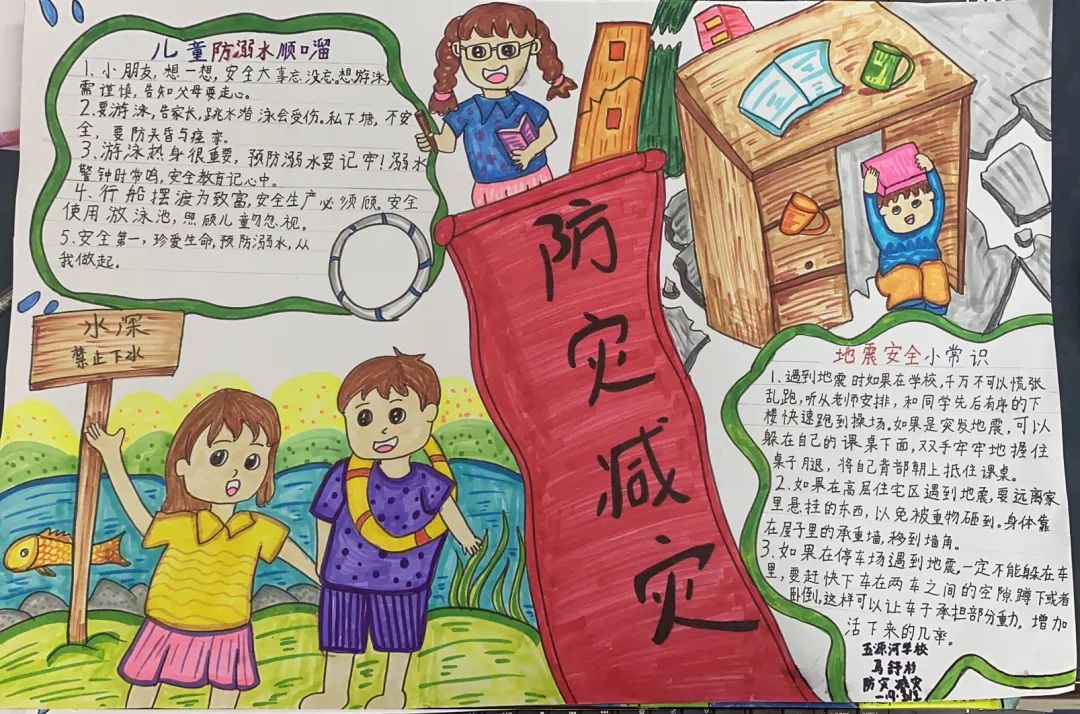 儿童防溺水顺口溜
1、小朋友,想一想,安全大事忘没忘。想游泳,
需谨慎,告知父母要走心。
2.要游泳,告家长,跳水潜泳会受伤。私下塘,不安
全,要防头昏与痉挛。
3、游泳热身很重要,预防溺水要记牢!溺水
警钟时常鸣,安全教育记心中。
4、行船摆渡为致富,安全生产必须顾。安全
使用放泳池,照顾儿童勿忽视。
5.安全第一,珍爱生命,预防溺水,从
我做起。
水深
禁止下水
防灾减灾
地震安全小常识
1、遇到地震时如果在学校,千万不可以慌张
乱跑,听从老师安排,和同学先后有序的下
楼快速跑到操场。如果是突发地震,可以
躲在自己的课桌下面,双手牢牢地握住
桌子腿,将自己背部朝上抵住课桌。
2、如果在高层住宅区遇到地震,要远离家
里悬挂的东西,以免被重物砸到。身体靠
在屋子里的承重墙,移到墙角。
3、如果在停车场遇到地震,一定不能躲在车
里,要赶快下车在两车之间的空隙蹲下或者
卧倒,这样可以让车子承担部分重力,增加
活下来的几率。
玉源河学校
防灾减灾